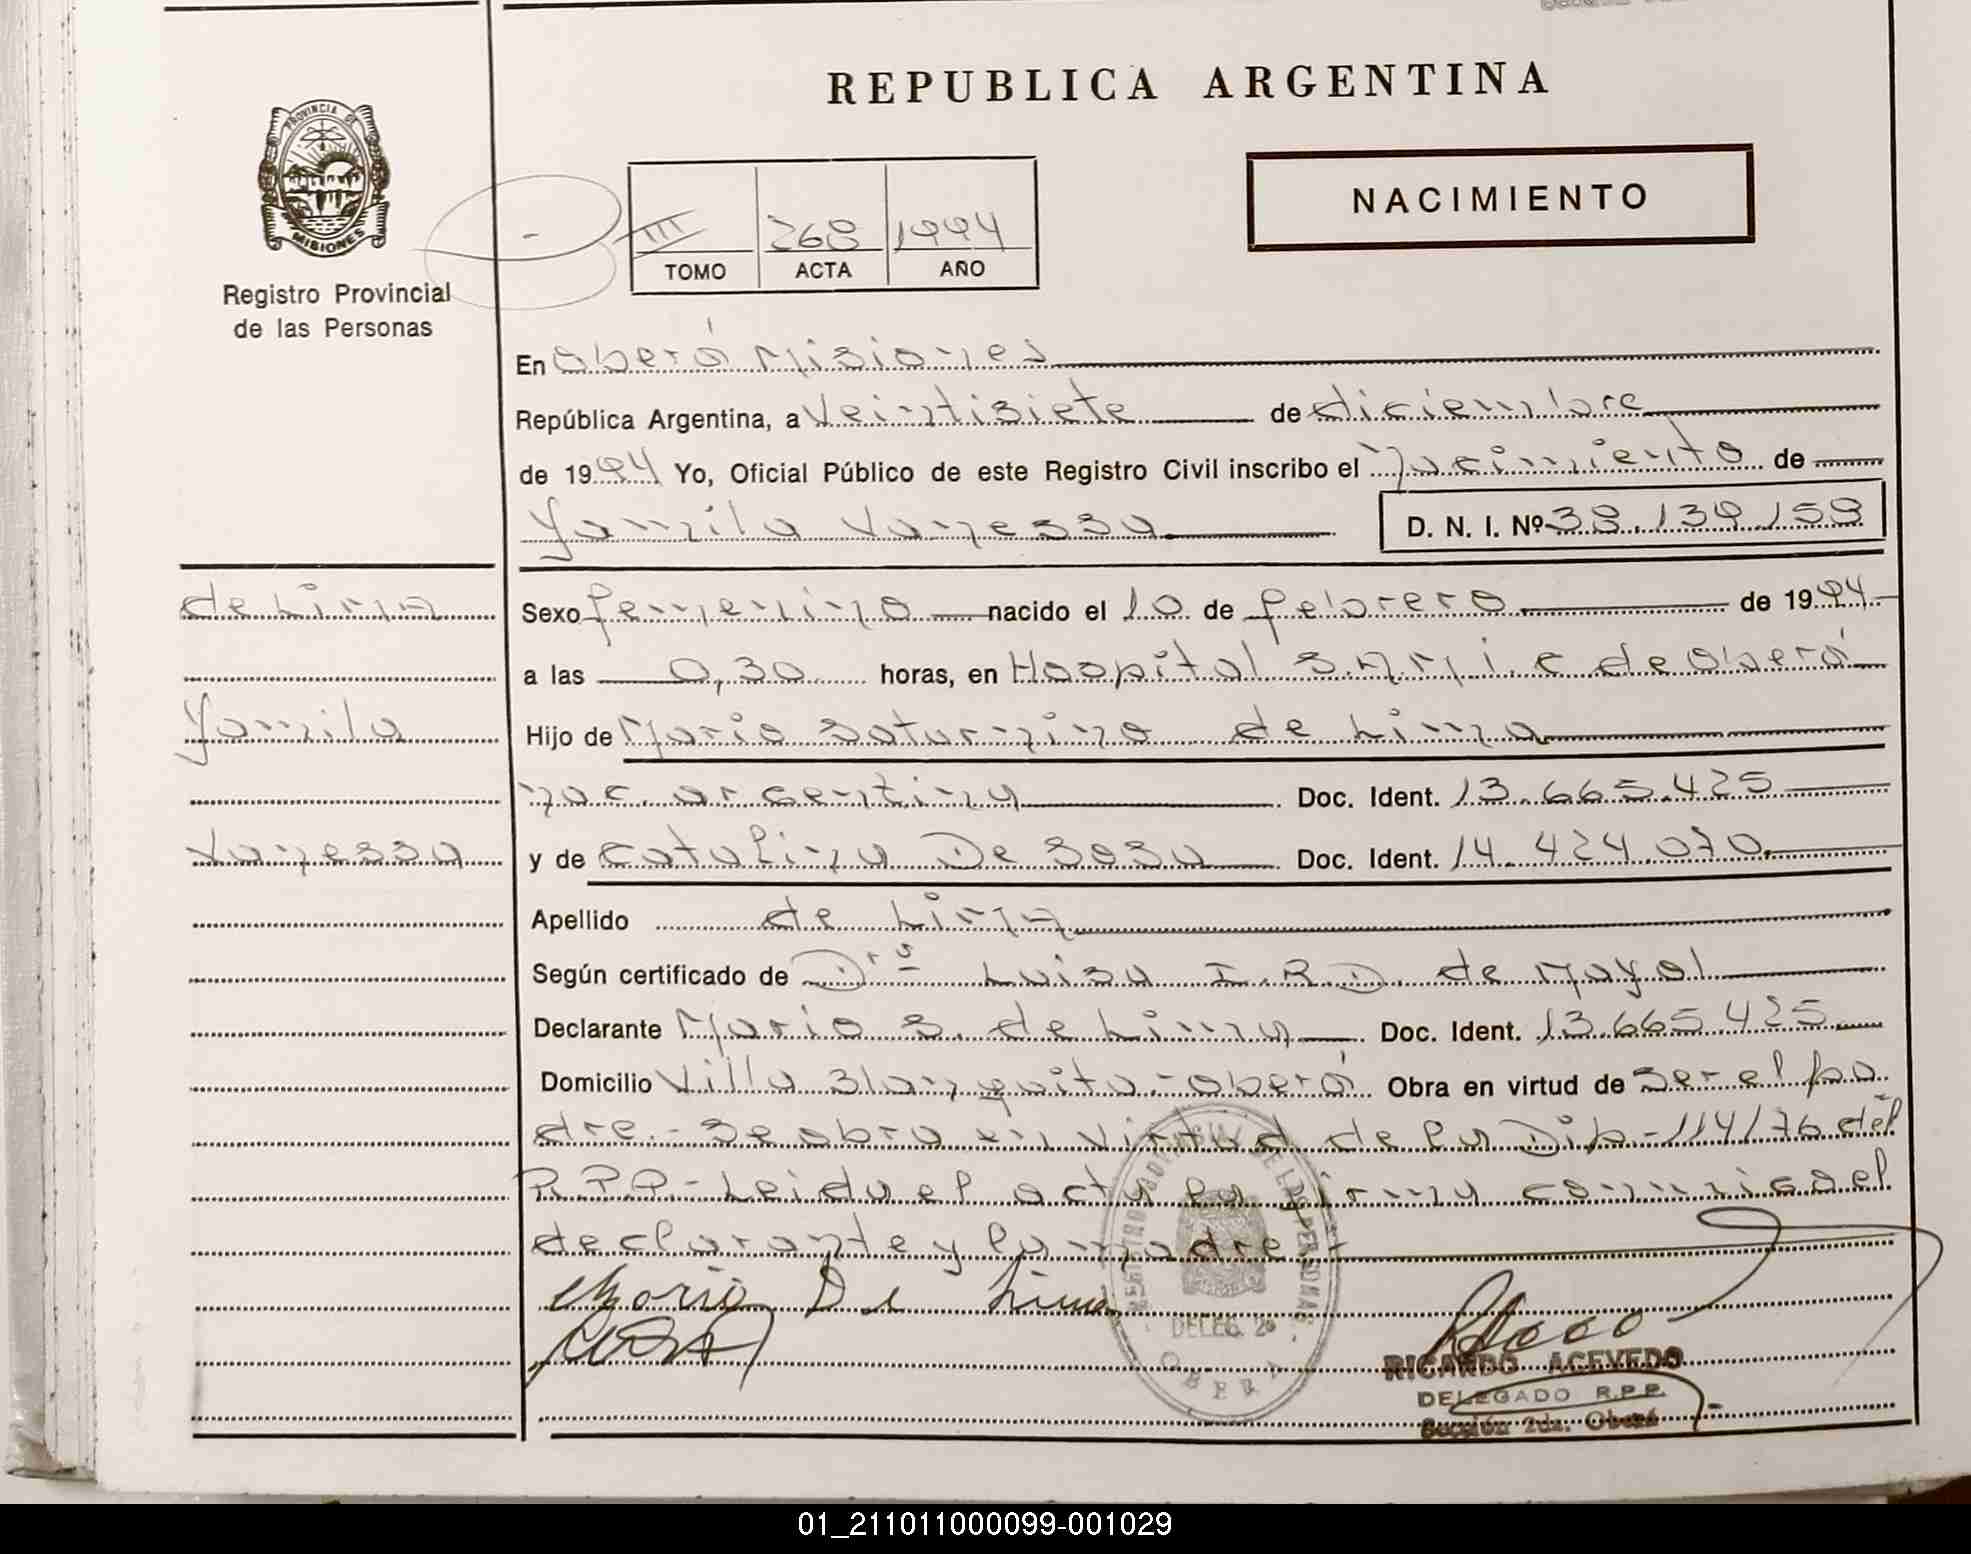 REPUBLICA ARGENTINA
PROVINCIA DE
MISIONES
Registro Provincial
de las Personas
NACIMIENTO
III 268 1994
TOMO ACTA AÑO
En Oberá Misiones
República Argentina, a Veintisiete de diciembre
de 1994 Yo, Oficial Público de este Registro Civil inscribo el Nacimiento de
Yamila Vanessa D. N. I. Nº 38.139.159
de Lima
Sexo femenino nacido el 10 de febrero de 1994
a las 0,30 horas, en Hospital S.A.M.i.c de Oberá
Yamila
Hijo de Mario Saturnino de Lima
nac. argentina Doc. Ident. 13.665.425
Vanessa
y de Catalina De Sosa Doc. Ident. 14.424.070
Apellido de Lima
Según certificado de Drs Luisa I.R.D. de Mayol
Declarante Mario S. de Lima Doc. Ident. 13.665.425
Domicilio Villa Blanquita-Oberá Obra en virtud de Ser el pa
dre.- Se obra en virtud de la Dip-114/76 del
R.P.P.- Leida el acta la firma conmigo el
declarante y la madre
Mario De Lima
DELEG. 2ª
OBERA
RICARDO ACEVEDO
DELEGADO R.P.P.
Sección 2da. Oberá
01_211011000099-001029